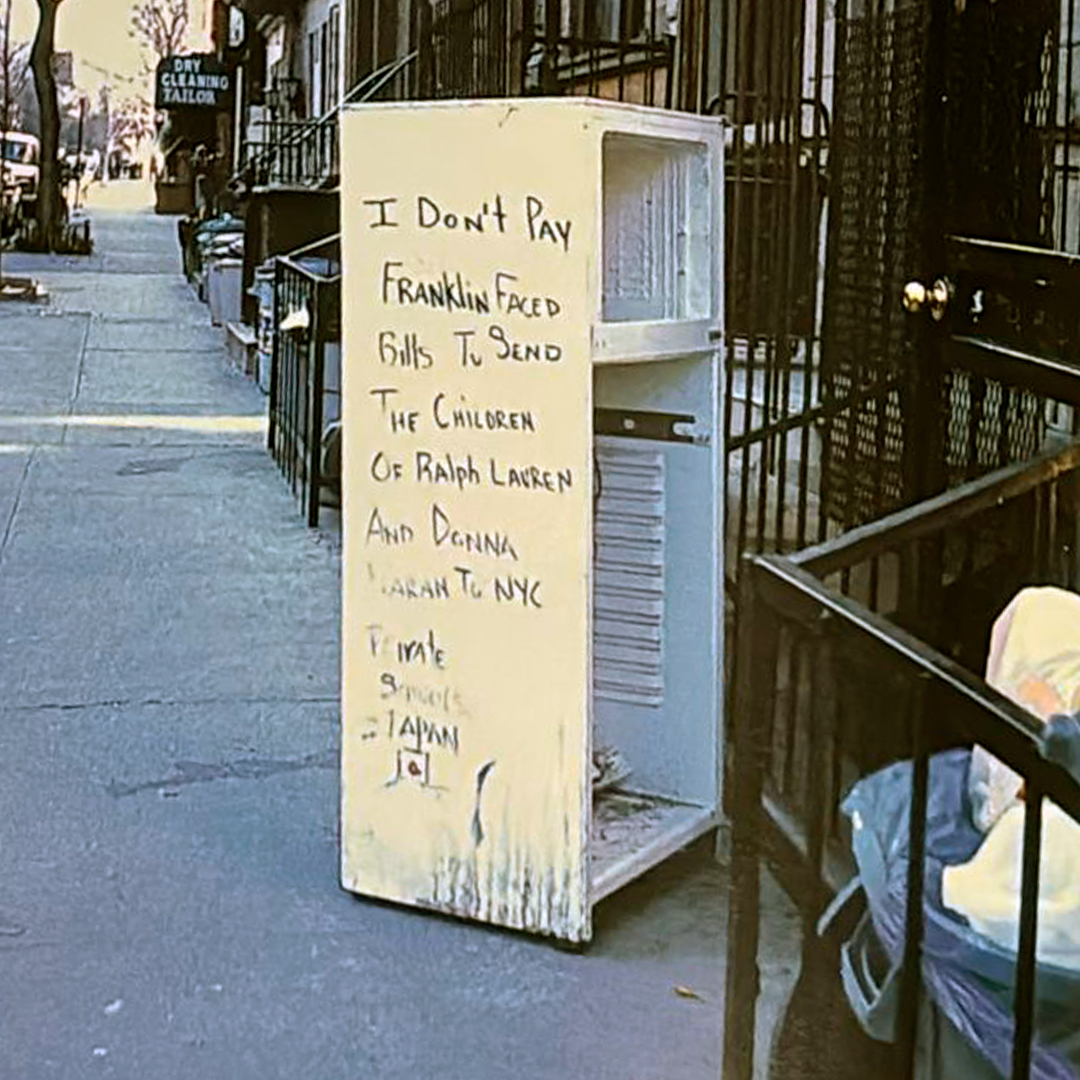 DRY
CLEANING
TAILOR
I DON'T PAY
FRANKliN FACED
Bills To SEND
THE CHilDREN
OF RAlph LAUREN
AND DONNA
KARAN To NYC
PRivAtE
SCHOOLS
JAPAN